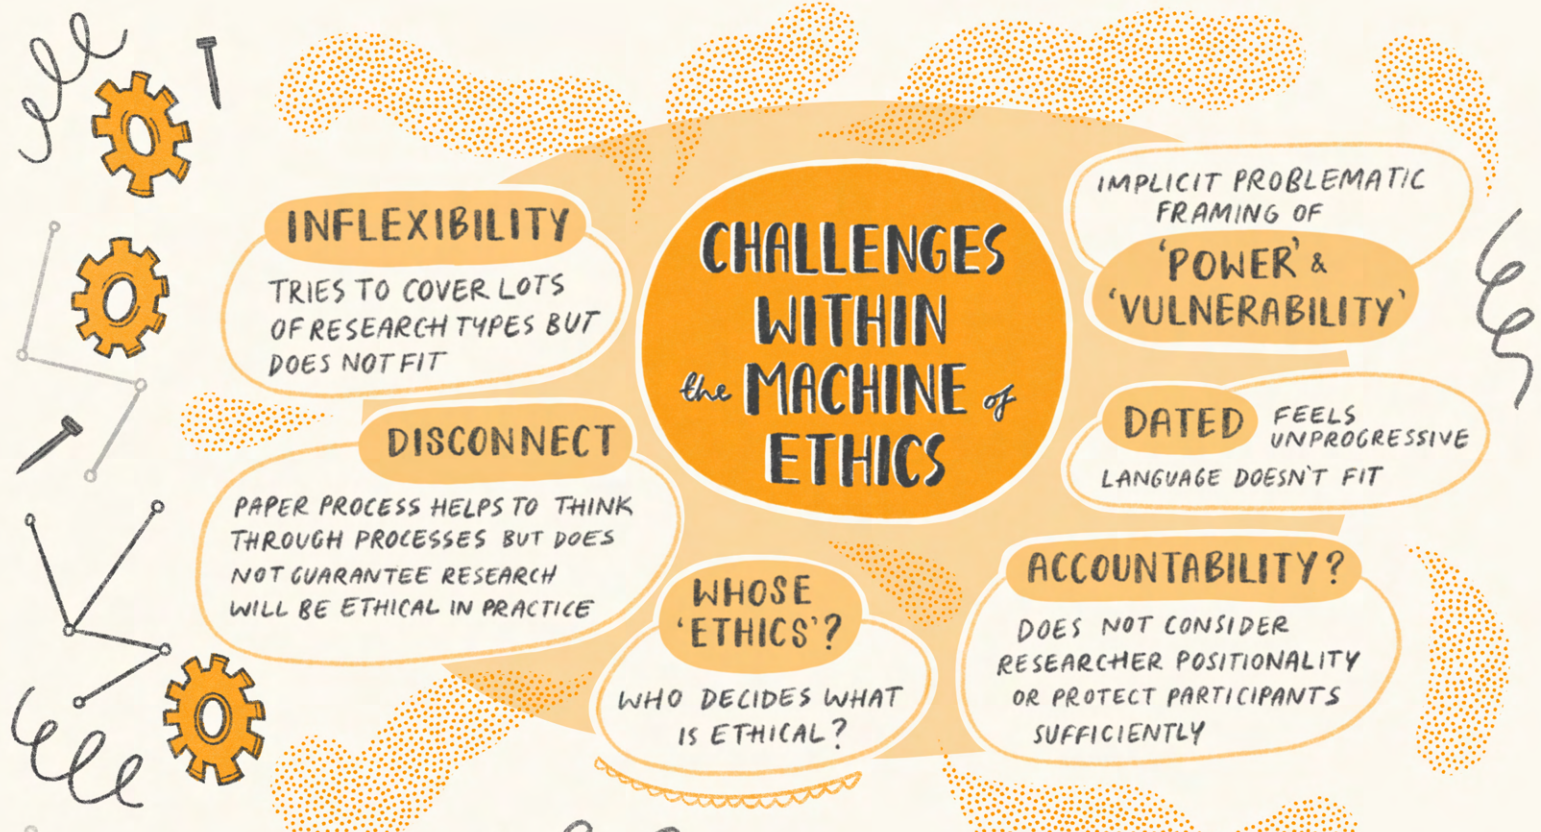 CHALLENGES
WITHIN
the MACHINE of
ETHICS
INFLEXIBILITY
TRIES TO COVER LOTS
OF RESEARCH TYPES BUT
DOES NOT FIT
DISCONNECT
PAPER PROCESS HELPS TO THINK
THROUGH PROCESSES BUT DOES
NOT GUARANTEE RESEARCH
WILL BE ETHICAL IN PRACTICE
WHOSE
'ETHICS'?
WHO DECIDES WHAT
IS ETHICAL?
IMPLICIT PROBLEMATIC
FRAMING OF
'POWER' &
'VULNERABILITY'
DATED FEELS
UNPROGRESSIVE
LANGUAGE DOESN'T FIT
ACCOUNTABILITY?
DOES NOT CONSIDER
RESEARCHER POSITIONALITY
OR PROTECT PARTICIPANTS
SUFFICIENTLY